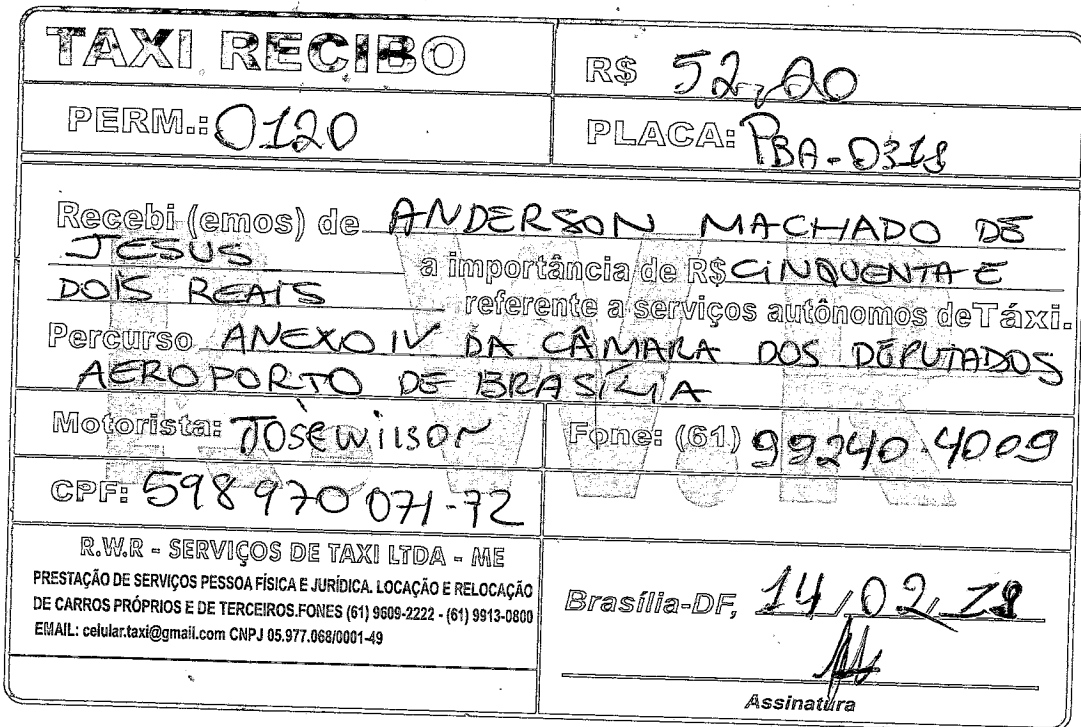 TAXI RECIBO
R$ 52,20
PERM.: 0120
PLACA: PBA-0318
Recebi (emos) de ANDERSON MACHADO DE
JESUS a importância de R$ CINQUENTA E
DOIS REAIS referente a serviços autônomos de Táxi.
Percurso ANEXO IV DA CÂMARA DOS DEPUTADOS
AEROPORTO DE BRASÍLIA
Motorista: JOSEWILSON
Fone: (61) 99240-4009
CPF: 598 970 071-72
R.W.R - SERVIÇOS DE TAXI LTDA - ME
PRESTAÇÃO DE SERVIÇOS PESSOA FÍSICA E JURÍDICA. LOCAÇÃO E RELOCAÇÃO
DE CARROS PRÓPRIOS E DE TERCEIROS.FONES (61) 9609-2222 - (61) 9913-0800
EMAIL: celular.taxi@gmail.com CNPJ 05.977.068/0001-49
Brasília-DF, 14/02/
Assinatura